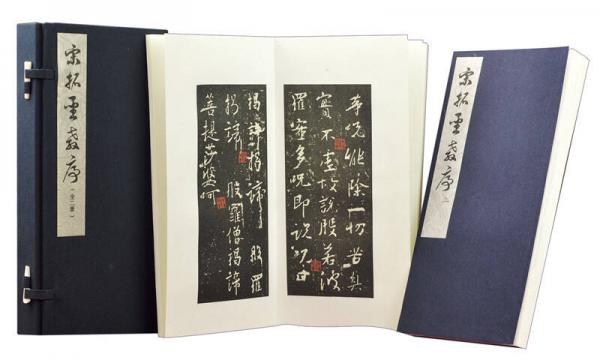 宋拓聖教序(全二冊)
等呪能除一切苦真
實不虛故說般若波
羅蜜多呪即說呪曰
揭諦揭諦 般羅
揭諦 般羅僧揭諦
菩提莎婆呵
宋拓聖教序